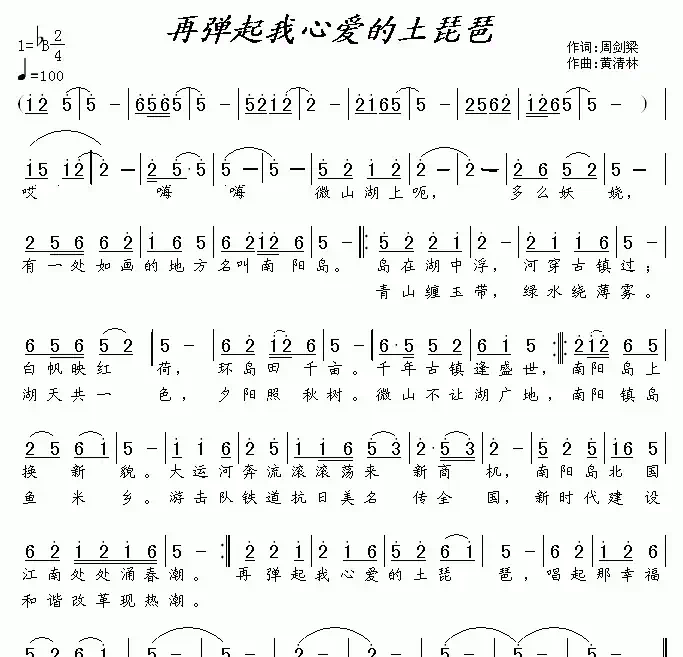 再弹起我心爱的土琵琶
1=♭B 2/4
♩=100
作词:周剑梁
作曲:黄清林
( i 2 5 | 5 - | 6 5 6 5 | 5 - | 5 2 1 2 | 2 - | 2 1 6 5 | 5 - | 2 5 6 2 | i 2 6 5 | 5 - ) |
i 5 i 2 | 2 - | 2 2 5 · 5 | 5 - | 5 2 1 2 | 2 - | 2 - | 2 6 5 2 | 5 - |
哎 嗨 嗨 微山湖上呃, 多么妖 娆,
2 5 6 6 2 | i 6 5 | 6 2 i 2 6 | 5 - |: 5 2 2 1 | 2 - | 2 1 1 6 | 5 - |
有一处如画的地方名叫南阳岛。 岛在湖中浮, 河穿古镇过;
青山缠玉带, 绿水绕薄雾。
6 5 6 5 2 | 5 - | 6 2 i 2 | 6 · 5 | 5 2 2 5 | 6 i 5 :||: 2 i 2 6 5 |
白帆映红 荷, 环岛田 千亩。千年古镇逢盛世, 南阳岛上
湖天共一 色, 夕阳照 秋树。微山不让湖广地, 南阳镇岛
2 5 6 1 | 2 - | i i 6 | 5 i i 6 | 5 5 3 | 2 · 5 3 | 5 2 5 | i 6 5 |
换 新 貌。大运河奔流滚滚荡来 新商 机, 南阳岛北国
鱼 米 乡。游击队铁道抗日美名 传全 国, 新时代建设
6 2 i 2 i 6 | 5 - :|| 2 2 1 | 2 1 6 | 5 2 6 1 | i - | 2 2 1 6 |
江南处处涌春潮。 再弹起我心爱的土琵 琶, 唱起那幸福
和谐改革现热潮。